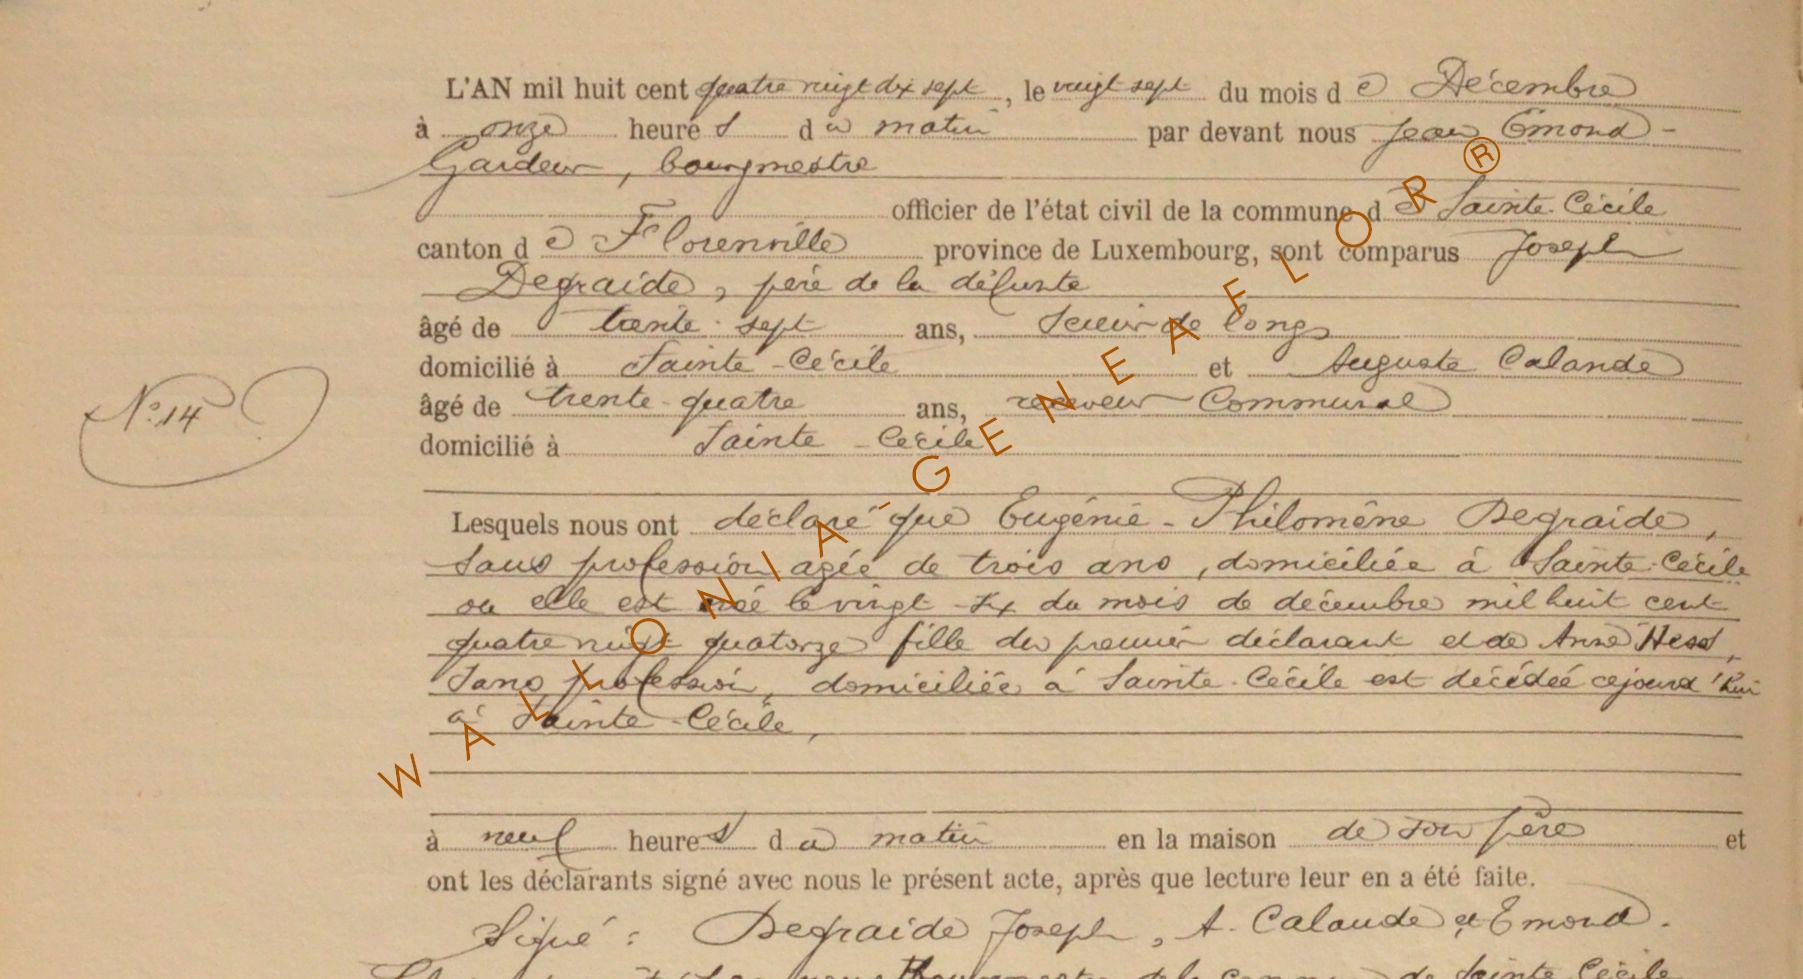 L'AN mil huit cent quatre vingt dix sept, le vingt sept du mois de Décembre
à onze heures du matin par devant nous Jean Emond-
Gardeur, bourgmestre
officier de l'état civil de la commune de Sainte-Cécile
canton de Florenville province de Luxembourg, sont comparus Joseph
Degraide, père de la défunte
âgé de trente-sept ans, Scieur de long
domicilié à Sainte-Cécile et Auguste Calande
N° 14
âgé de trente-quatre ans, receveur Communal
domicilié à Sainte-Cécile
Lesquels nous ont déclaré que Eugénie-Philomène Degraide,
sans profession agée de trois ans, domiciliée à Sainte-Cécile
ou elle est née le vingt-six du mois de décembre mil huit cent
quatre vingt quatorze fille du premier déclarant et de Anne Hess,
Sans profession, domiciliée à Sainte-Cécile est décédée cejourd'hui
à Sainte-Cécile,
à neuf heures du matin en la maison de son père et
ont les déclarants signé avec nous le présent acte, après que lecture leur en a été faite.
Signé: Degraide Joseph, A. Calande et Emond.
de Sainte Cécile
WALLONIA-GENEAFLOR®